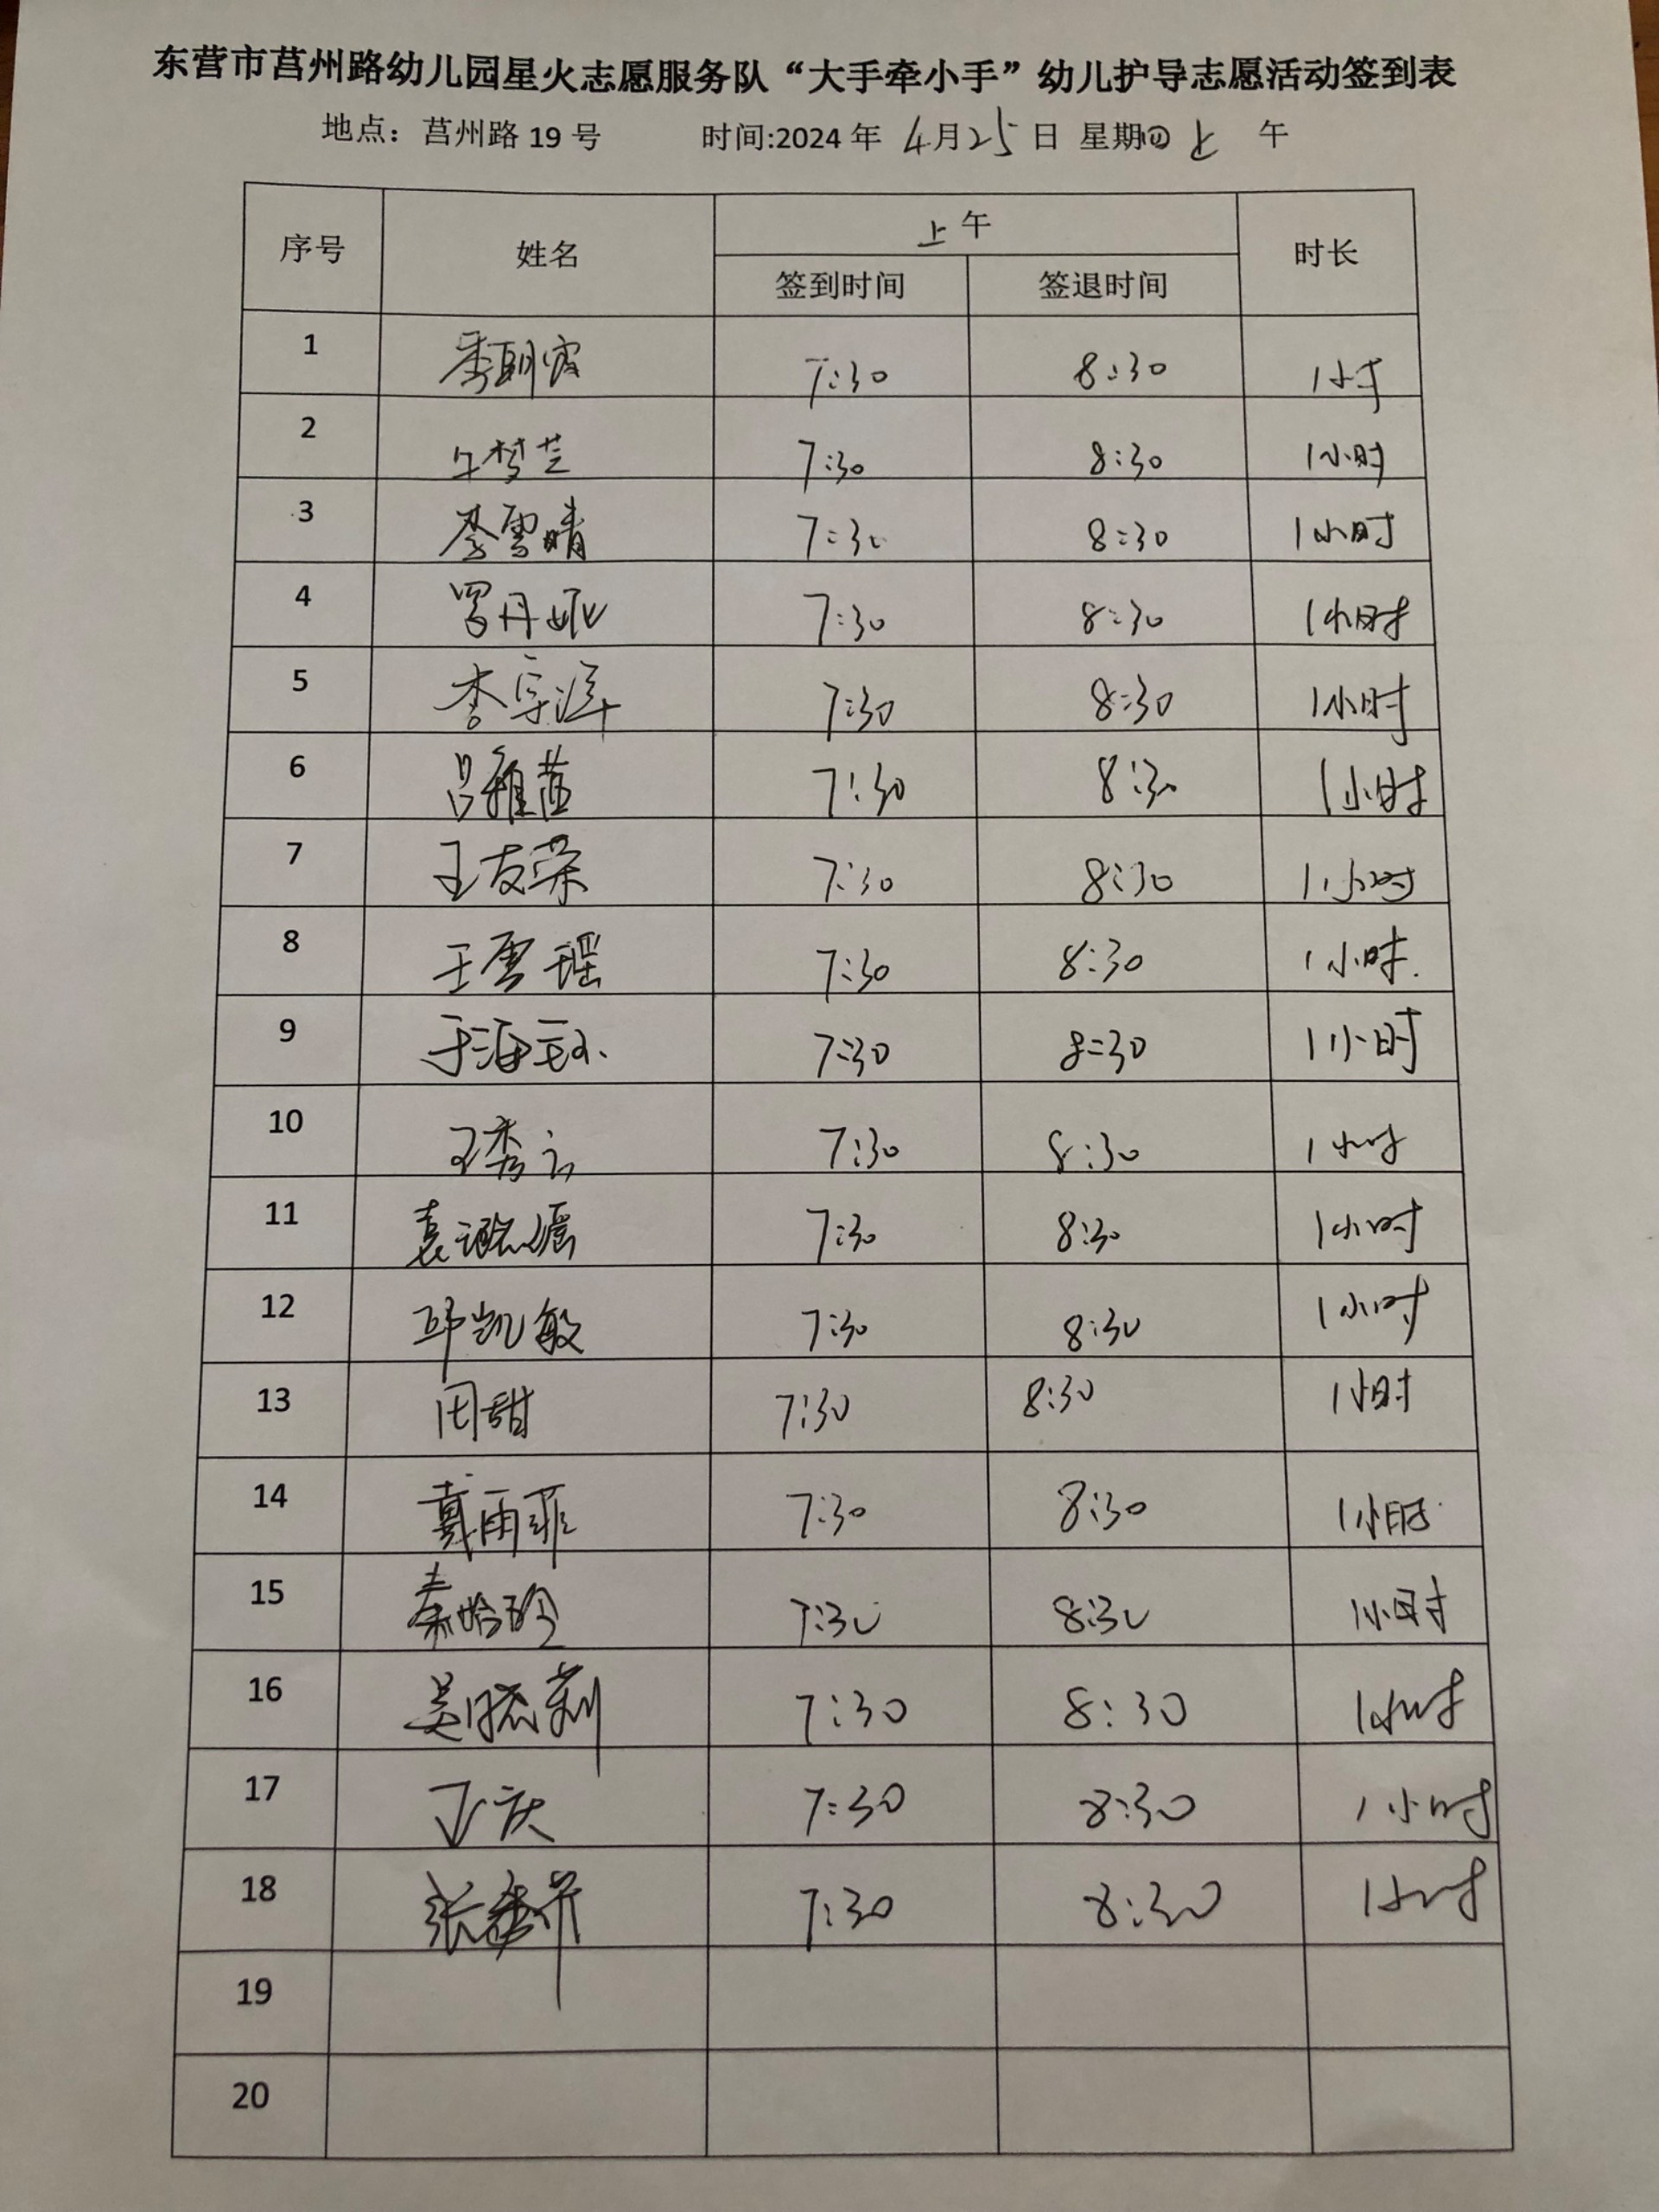 东营市莒州路幼儿园星火志愿服务队“大手牵小手”幼儿护导志愿活动签到表
地点：莒州路 19 号 时间:2024 年 4月25日 星期四 上 午
序号 姓名 上午 时长
签到时间 签退时间
1 季朝霞 7:30 8:30 1小时
2 7:30 8:30 1小时
3 李雪晴 7:30 8:30 1小时
4 罗丹妮 7:30 8:30 1小时
5 李宗泽 7:30 8:30 1小时
6 吕雅茹 7:30 8:30 1小时
7 王友荣 7:30 8:30 1小时
8 王雪瑶 7:30 8:30 1小时.
9 7:30 8:30 1小时
10 王秀云 7:30 8:30 1小时
11 袁 7:30 8:30 1小时
12 邱凯敏 7:30 8:30 1小时
13 周甜 7:30 8:30 1小时
14 戴雨菲 7:30 8:30 1小时
15 秦 7:30 8:30 1小时
16 姜晓莉 7:30 8:30 1小时
17 7:30 8:30 1小时
18 张 7:30 8:30 1小时
19
20